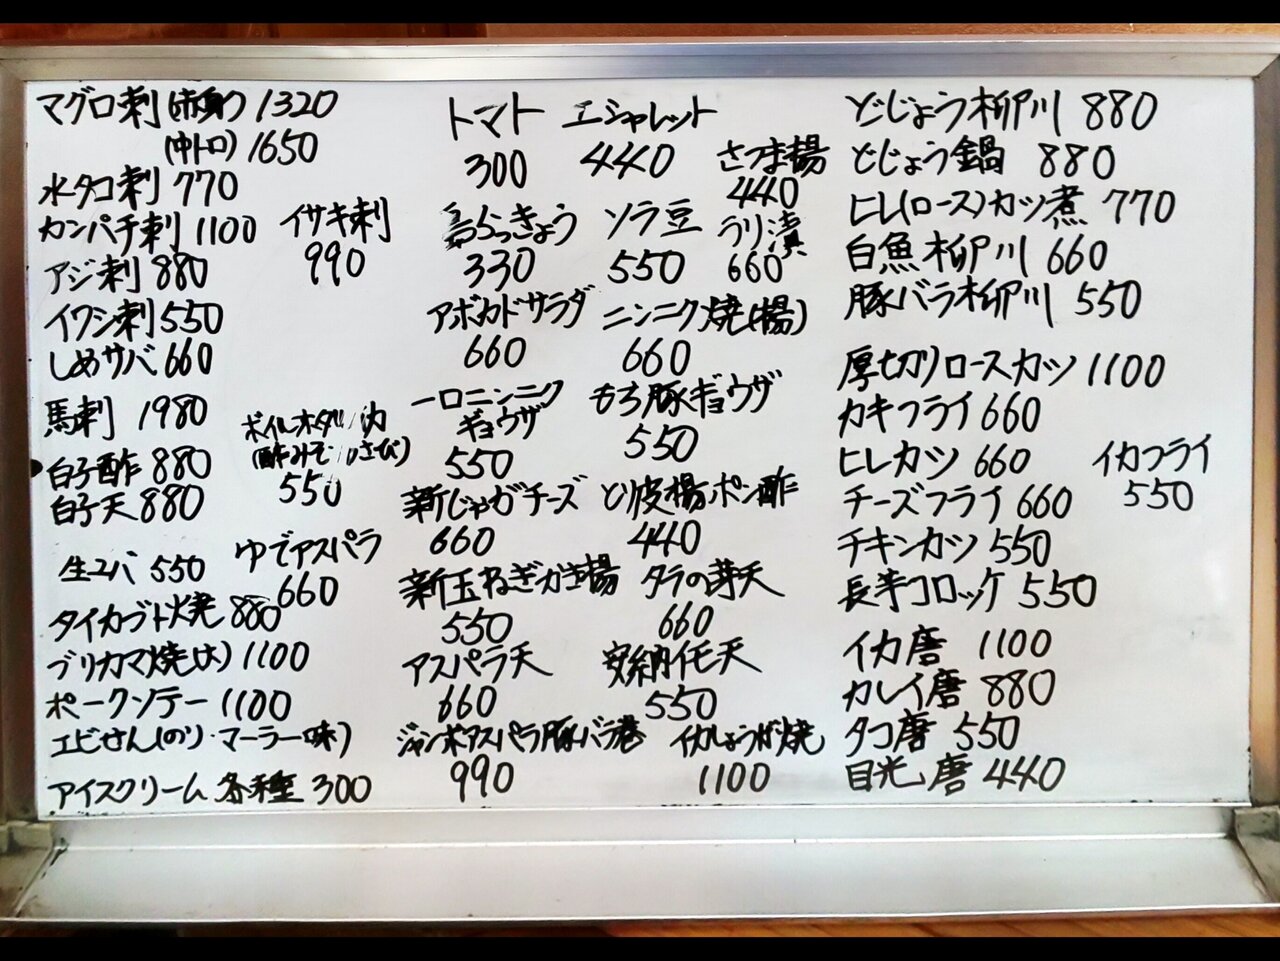 マグロ刺(赤身) 1320
(中トロ) 1650
水タコ刺 770
カンパチ刺 1100
イサキ刺
990
アジ刺 880
イワシ刺 550
しめサバ 660
馬刺 1980
ボイルホタルイカ
(酢みそ・わさび)
550
白子酢 880
白子天 880
生ユバ 550
ゆでアスパラ
660
タイカブト焼 880
ブリカマ焼(大) 1100
ポークソテー 1100
エビせん(のり・マーラー味)
アイスクリーム 各種 300
トマト
300
エシャレット
440
さつま揚
440
島らっきょう
330
ソラ豆
550
うり漬
660
アボカドサラダ
660
ニンニク焼(揚)
660
一口ニンニク
ギョウザ
550
もち豚ギョウザ
550
新じゃがチーズ
660
とり皮揚ポン酢
440
新玉ねぎかき揚
550
タラの芽天
660
アスパラ天
660
安納イモ天
550
ジャンボアスパラ豚バラ巻
990
イカしょうが焼
1100
どじょう柳川 880
どじょう鍋 880
ヒレ(ロース)カツ煮 770
白魚柳川 660
豚バラ柳川 550
厚切りロースカツ 1100
カキフライ 660
ヒレカツ 660
イカフライ
550
チーズフライ 660
チキンカツ 550
長芋コロッケ 550
イカ唐 1100
カレイ唐 880
タコ唐 550
目光唐 440